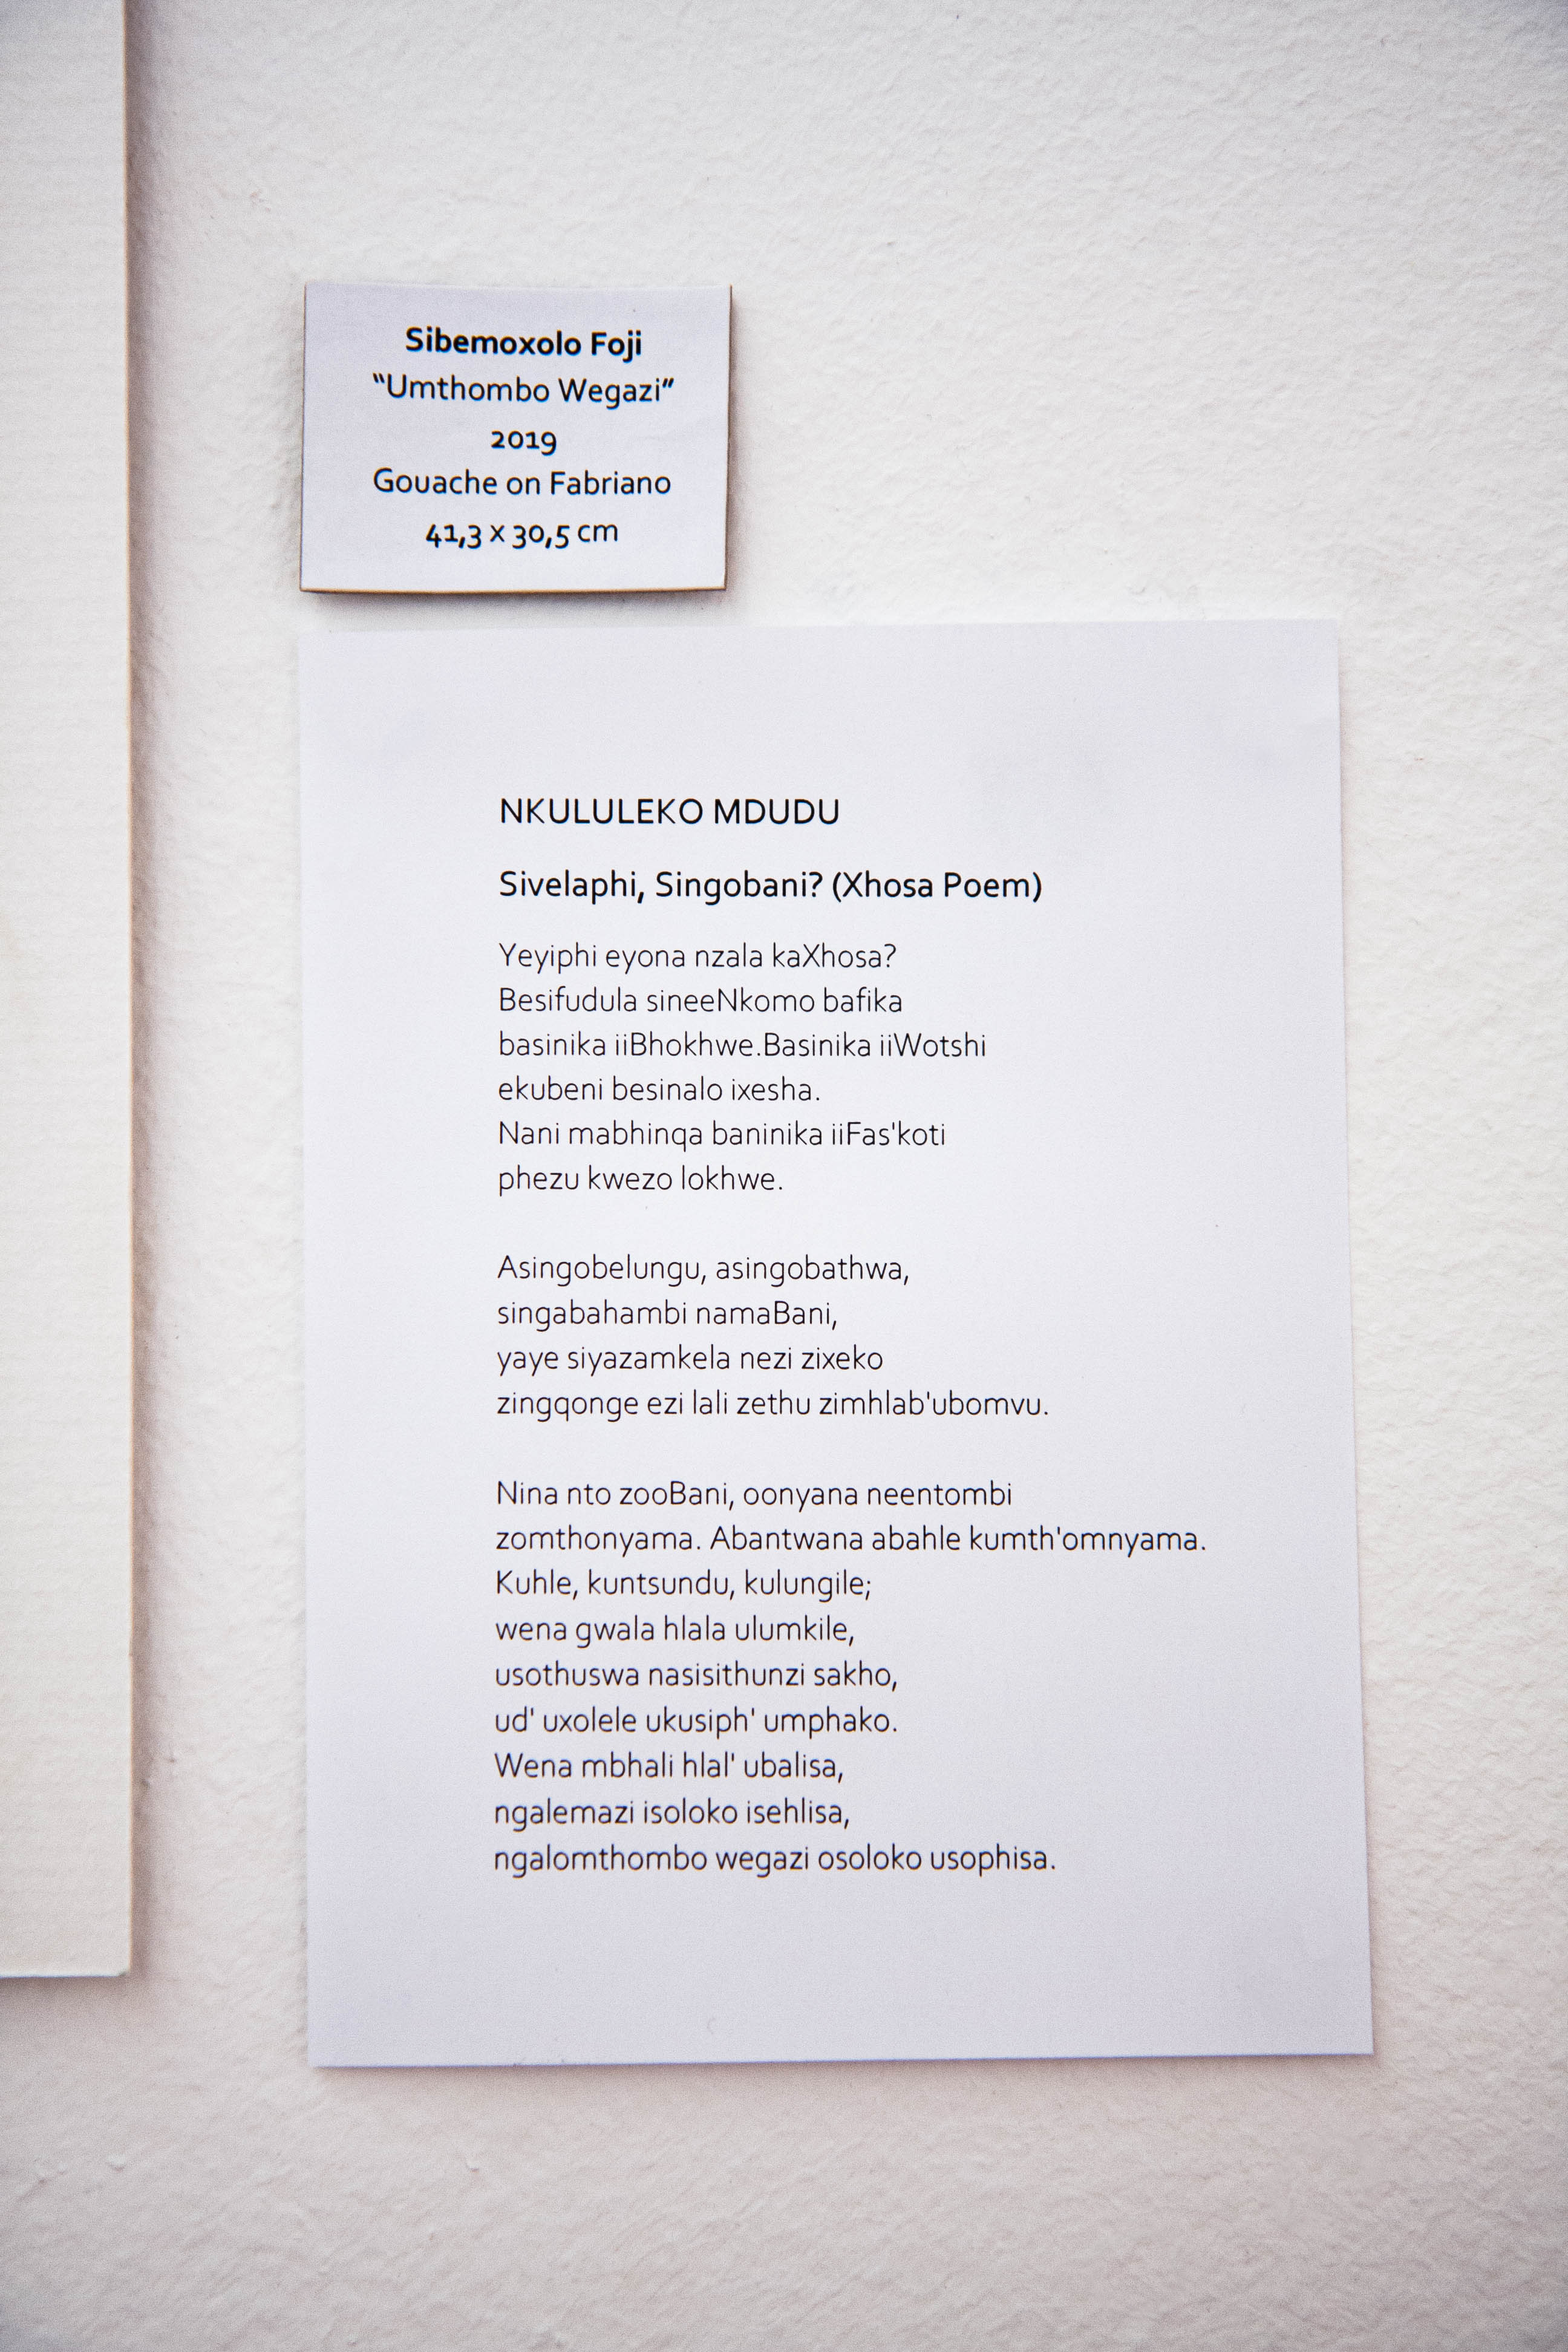 Sibemoxolo Foji
“Umthombo Wegazi”
2019
Gouache on Fabriano
41,3 x 30,5 cm
NKULULEKO MDUDU
Sivelaphi, Singobani? (Xhosa Poem)
Yeyiphi eyona nzala kaXhosa?
Besifudula sineeNkomo bafika
basinika iiBhokhwe.Basinika iiWotshi
ekubeni besinalo ixesha.
Nani mabhinqa baninika iiFas'koti
phezu kwezo lokhwe.
Asingobelungu, asingobathwa,
singabahambi namaBani,
yaye siyazamkela nezi zixeko
zingqonge ezi lali zethu zimhlab'ubomvu.
Nina nto zooBani, oonyana neentombi
zomthonyama. Abantwana abahle kumth'omnyama.
Kuhle, kuntsundu, kulungile;
wena gwala hlala ulumkile,
usothuswa nasisithunzi sakho,
ud' uxolele ukusiph' umphako.
Wena mbhali hlal' ubalisa,
ngalemazi isoloko isehlisa,
ngalomthombo wegazi osoloko usophisa.